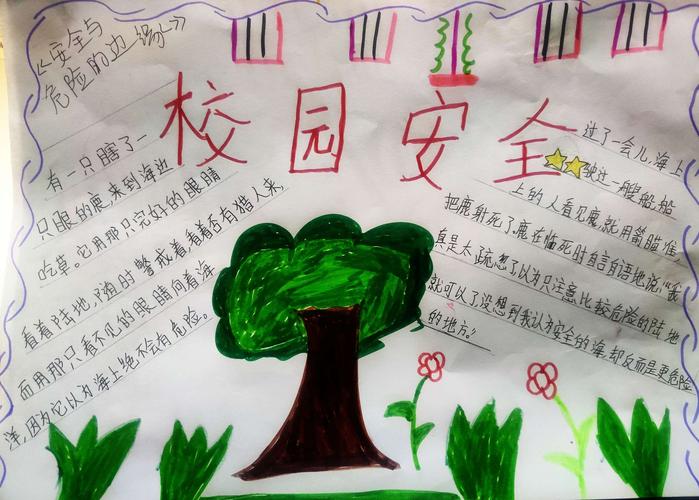 《安全与
危险的边缘》
校园安全
有一只瞎了一
只眼的鹿,来到海边
吃草。它用那只完好的眼睛
看着陆地,随时警戒着,看着否有猎人来,
而用那只看不见的眼睛向着海
洋,因为它认为海上绝不会有危险。
过了一会儿,海上
驶过一艘船,船
上的人看见鹿,就用箭瞄准,
把鹿射死了。鹿在临死时自言自语地说,“我
真是太疏忽了以为只注意比较危险的陆地
就可以了没想到我认为安全的海,却反而是更危险
的地方。”